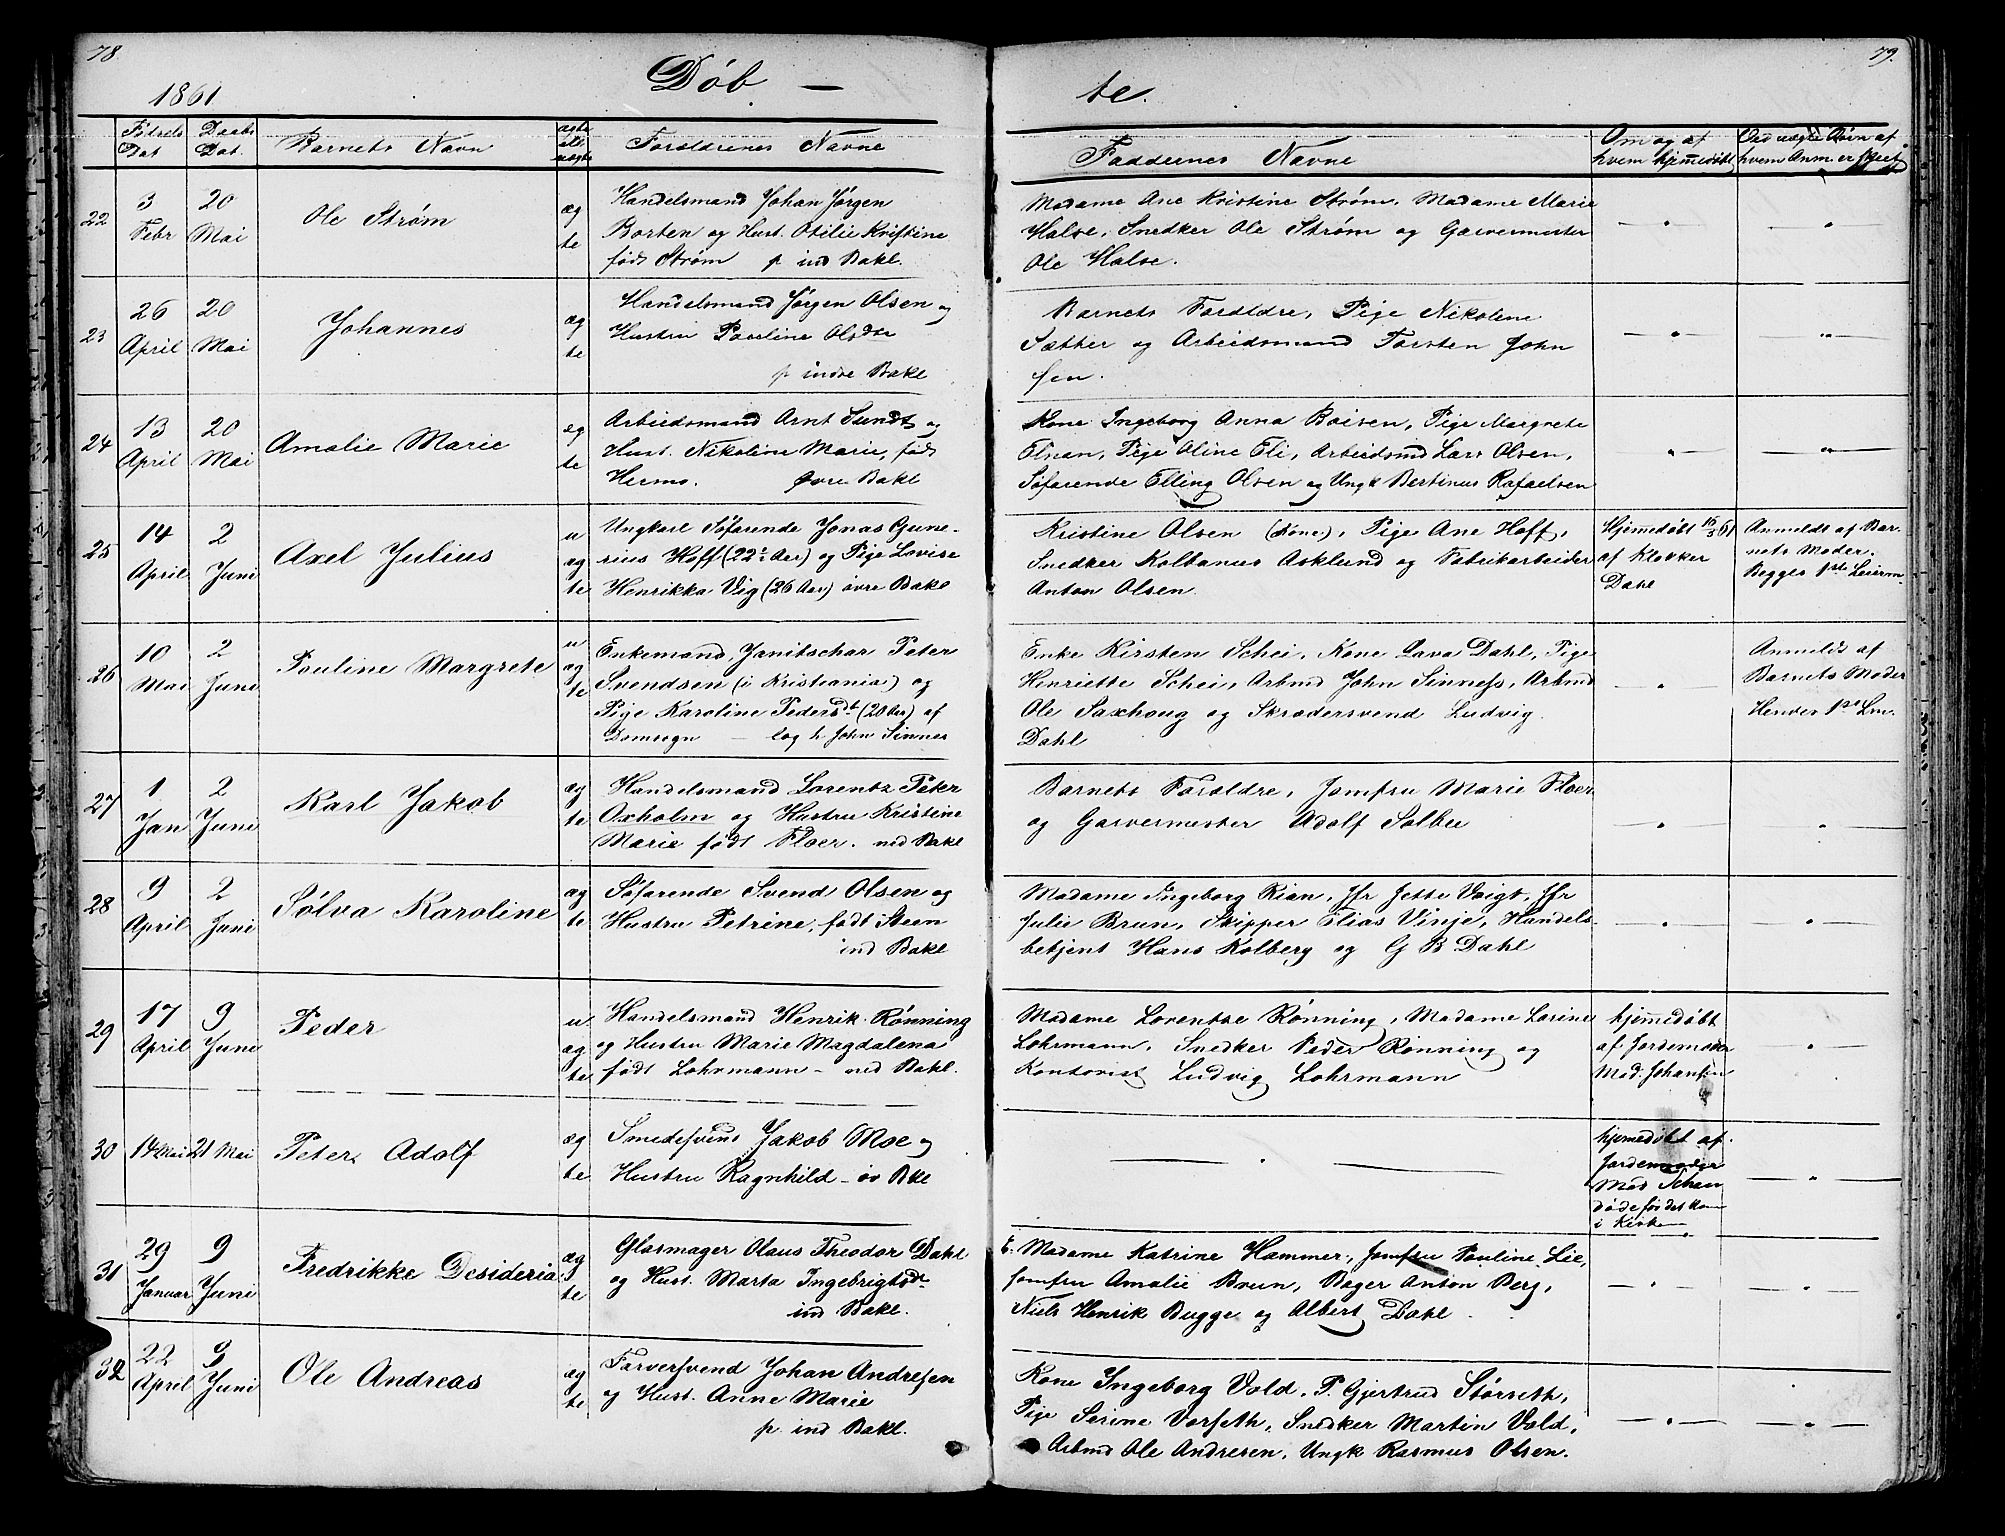 78
79.
1861
Døb - te.
Fødsels Dat
Daabs Dat.
Barnets Navn
ægte
uægte
Forældrenes Navne
Faddernes Navne
Om og af
hvem hjemedøbt
Ved uægte Børn af
hvem Anm er skeet
22
3 Febr
20 Mai
Ole Strøm
æg
te
Handelsmand Johan Jørgen
Borten og Hust. Otilie Kristine
født Strøm p ind Bakl.
Madame Ane Kristine Strøm, Madame Marie
Halse, Snedker Ole Strøm og Garvermester
Ole Halse.
23
26 April
20 Mai
Johannes
æg
te
Handelsmand Jørgen Olsen og
Hustru Pauline Olsdtr
p indre Bakl
Barnets Forældre, Pige Nikoline
Sætter og Arbeidsmand Torsten John
sen.
24
13 April
20 Mai
Amalie Marie
eg
te
Arbeidsmand Arnt Sundt og
Hust. Nikoline Marie, født
Hermo. Øvre Bakl
Kone Ingeborg Anna Boisen, Pige Margrete
Elnan, Pige Oline Eli, Arbeidsmd Lars Olsen,
Søfarende Elling Olsen og Ungk Bertinus Rafaelsen
25
14 April
2 Juni
Axel Julius
u
æg
te
Ungkarl Søfarende Jonas Gune-
rius Hoff (22 1/2 Aar) og Pige Lovise
Henrikka Vig (26 Aar) øvre Bakl
Kristine Olsen (Kone), Pige Ane Hoff,
Snedker Kolbanus Asklund og Fabrikarbeider
Anton Olsen.
Hjemedøbt 15/5 61
af Klokker
Dahl
Anmeldt af Bar-
nets Moder.
Begges 1ste Leierm
26
10 Mai
2 Juni
Pouline Margrete
u
æg
te
Enkemand Janitschar Peter
Svendsen (i Kristiania) og
Pige Karoline Pedersdt (20 Aar) af
Domsogn - log h John Sinnes
Enke Kirsten Schei, Kone Lava Dahl, Pige
Henriette Schei, Arbmd John Sinness, Arbmd
Ole Saxhoug og Skrædersvend Ludvig
Dahl
Anmeldt af
Barnets Moder
Hendes 1ste Lm.
27
1 Jan
2 Juni
Karl Jakob
æg
te
Handelsmand Lorentz Peter
Oxholm og Hustru Kristine
Marie født Floer. ned Bakl
Barnets Forældre, Jomfru Marie Floer
og Garvermester Adolf Solbu
28
9 April
2 Juni
Sølva Karoline
æg
te
Søfarende Svend Olsen og
Hustru Petrine, født Steen
ind Bakl
Madame Ingeborg Rian, Jfr Jette Voigt, Jfr
Julie Brun, Skipper Elias Vinje, Handels-
betjent Hans Kolberg og G B Dahl
29
17 April
9 Juni
Peder
u
æg
te
Handelsmand Henrik Rønning
og Hustru Marie Magdalena
født Lohrmann - ned Bakl.
Madame Lorentse Rønning, Madame Lorine
Lohrmann, Snedker Peder Rønning og
Kontorist Ludvig Lohrmann
hjemedøbt
af Jordemoder
Mad. Johansen
30
14 Mai
21 Mai
Peter Adolf
æg
te
Smedesvend Jakob Moe og
Hustru Ragnhild - øv Bkl
hjemedøbt af
Jordemoder
Mad Schen
døde før det kom
i Kirken
31
29 Januar
9 Juni
Fredrikke Desideria
æg
te
Glasmager Olaus Theodor Dahl
og Hust. Marta Ingebrigtsdt
ind Bakl.
E. Madame Katrine Hammer, Jomfru Pauline Lie,
Jomfru Amalie Brun, Bager Anton Berg,
Niels Henrik Bugge og Albert Dahl.
32
22 April
9 Juni
Ole Andreas
æg
te
Farversvend Johan Andresen
og Hust. Anne Marie
p. ind Bakl.
Kone Ingeborg Vold, P. Gjertrud Størseth,
Pige Serine Vorseth, Snedker Martin Vold,
Arbmd Ole Andresen, Ungk Rasmus Olsen.